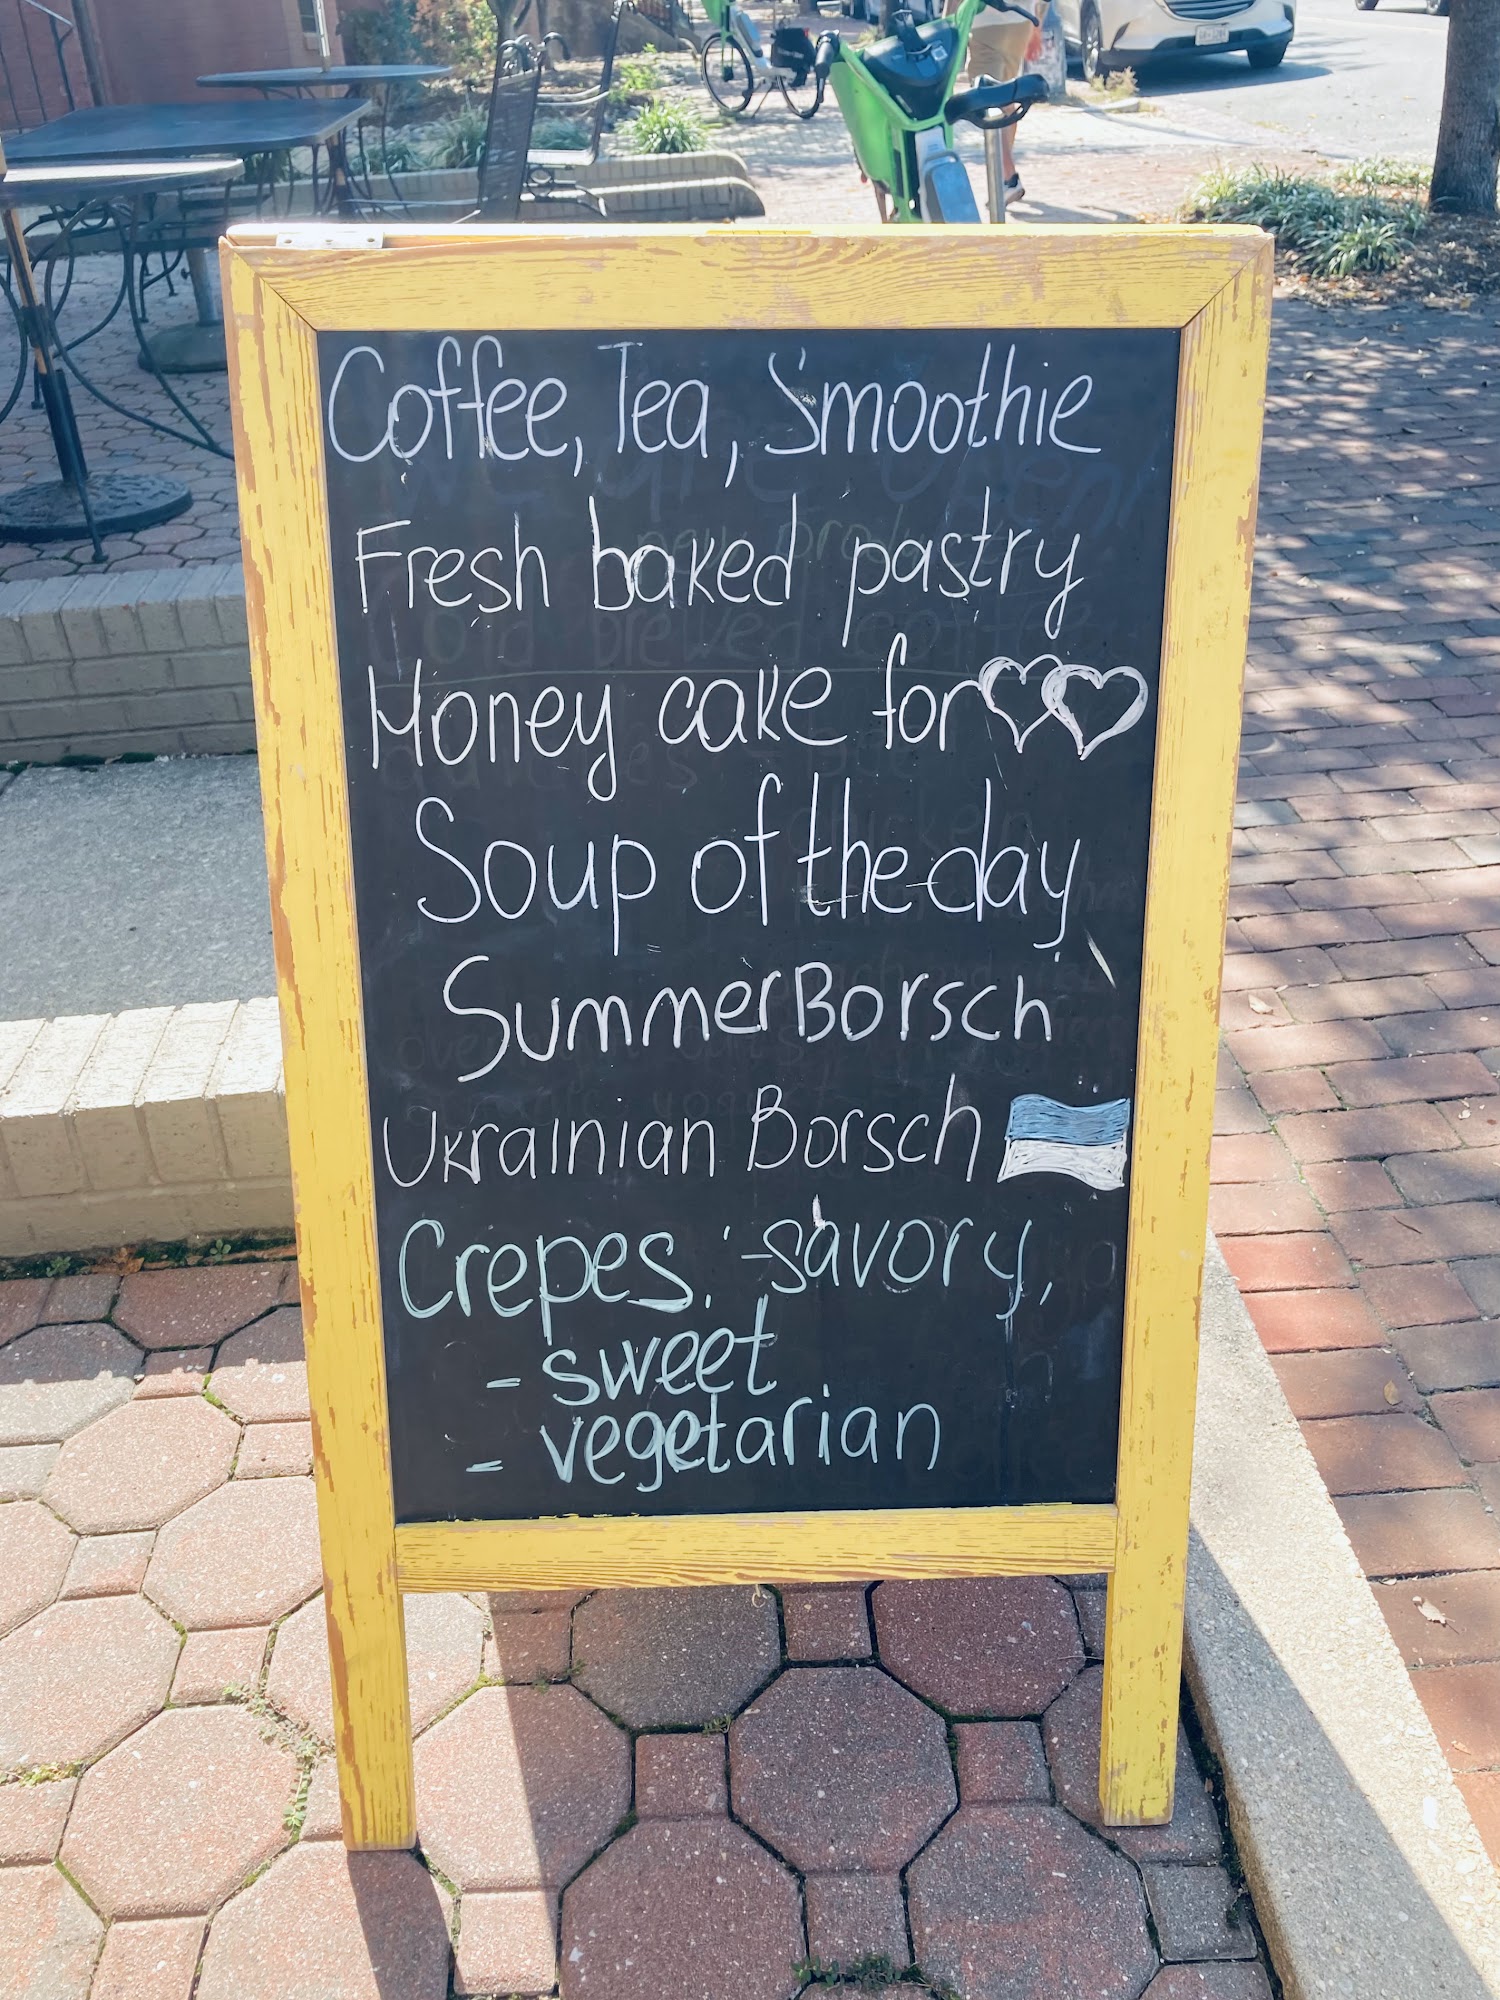 Coffee, Tea, Smoothie
Fresh baked pastry
Honey cake for
Soup of the day
Summer Borsch
Ukrainian Borsch
Crepes: - savory,
- sweet
- vegetarian